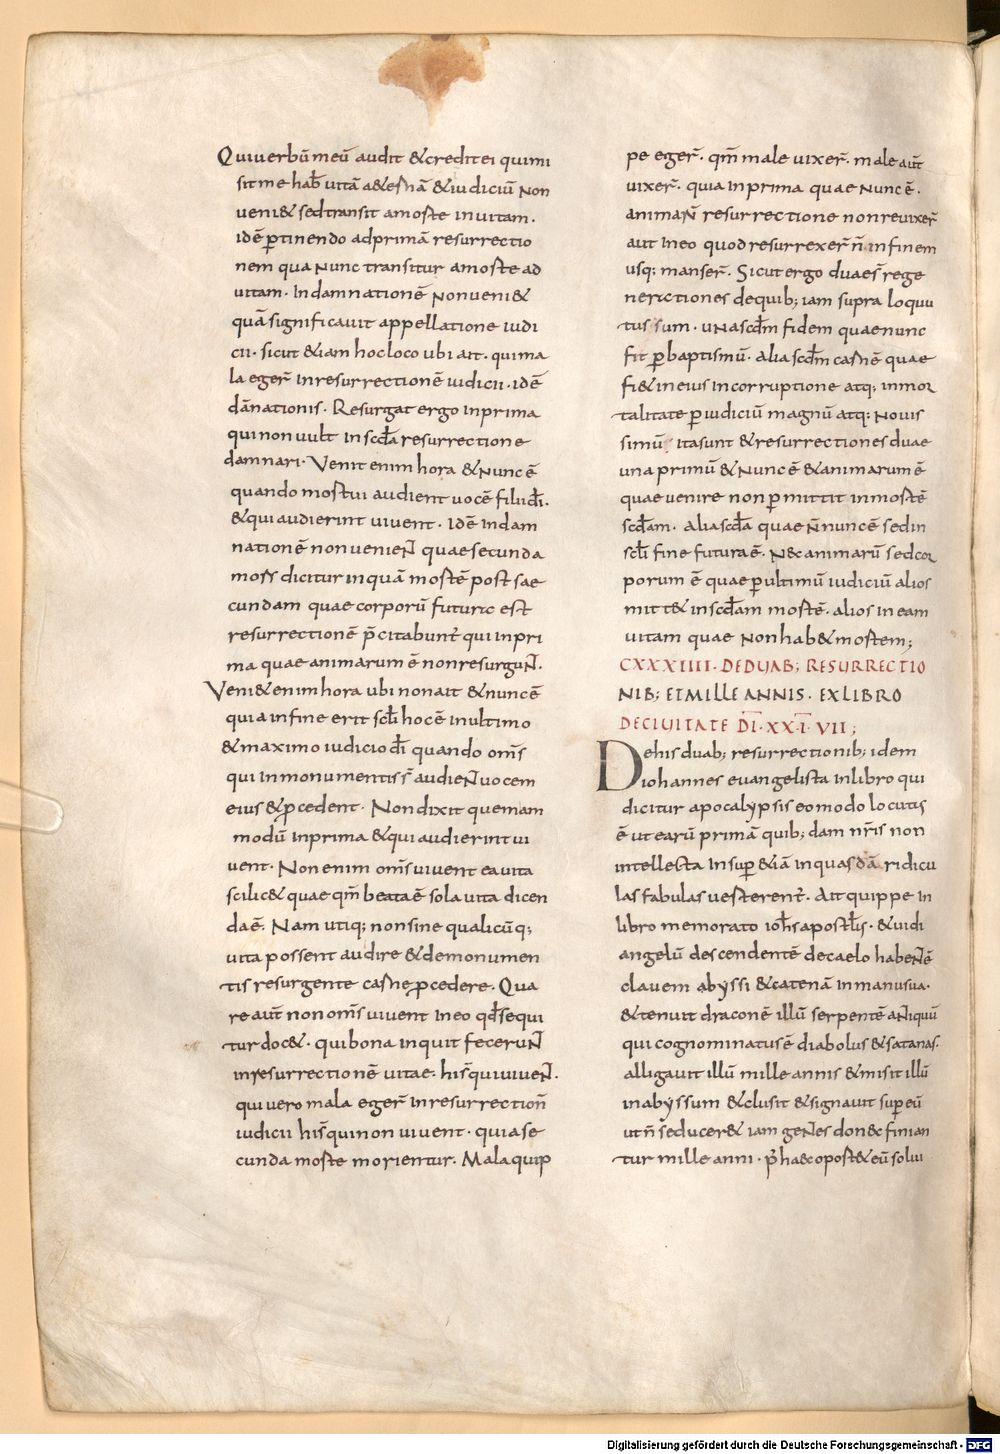 Qui uerbū meū audit & credit ei qui mi
sit me hab& uitā a&ernā & iudiciū non
ueni& sed transit a morte in uitam.
idē ꝑtinendo ad primā resurrectio
nem qua nunc transitur a morte ad
uitam. In damnationē non ueni&
quā significauit appellatione iudi
cii. sicut &iam hoc loco ubi ait. qui ma
la egeř in resurrectionē iudicii. idē
dānationis. Resurgat ergo in prima
qui non uult in scd̄a resurrectione
damnari. Venit enim hora & nunc ē
quando mortui audient uocē filii dī.
& qui audierint uiuent. Idē in dam
nationē non uenient quae secunda
mors dicitur in quā mortē post sae
cundam quae corporū futura est
resurrectionē p̄citabunt̄ qui in pri
ma quae animarum ē non resurgunt.
Veni& enim hora ubi non ait & nunc ē
quia in fine erit sc̄li hoc ē in ultimo
& maximo iudicio dī quando om̄s
qui in monumentis s̄ audient uocem
eius & ꝓcedent. Non dixit quemam
modū in prima & qui audierint ui
uent. Non enim om̄s uiuent ea uita
scilic& quae qm̄ beata ē sola uita dicen
da ē. Nam utiq; non sine qualicūq;
uita possent audire & de monumen
tis resurgente carne ꝓcedere. Qua
re aūt non om̄s uiuent in eo qd̄ sequi
tur doc&. qui bona inquit fecerunt
in resurrectionē uitae. hi s̄ qui uiuent.
qui uero mala egeř in resurrectionē
iudicii hi s̄ qui non uiuent. quia se
cunda morte morientur. Mala quip
pe egeř. qm̄ male uixeř. male aūt
uixeř. quia in prima quae nunc ē.
animarū resurrectione non reuixeř
aut in eo quod resurrexeř n̄ in finem
usq; manseř. Sicut ergo duae s̄ rege
nerationes de quib; iam supra loquu
tus sum. una scd̄m fidem quae nunc
fit ꝑ baptismū. alia scd̄m carnē quae
fi& in eius incorruptione atq; inmor
talitate ꝑ iudiciū magnū atq; nouis
simū ita sunt & resurrectiones duae
una primū & nunc ē & animarum ē
quae uenire non ꝑmittit in mortē
scd̄am. alia scd̄a quae n̄ nunc ē sed in
sc̄li fine futura ē. Nec animarū sed cor
porum ē quae ꝑ ultimū iudiciū alios
mitt& in scd̄am mortē. alios in eam
uitam quae non hab& mortem;
CXXXIIII. DE DUAB; RESURRECTIO
NIB; ET MILLE ANNIS. EX LIBRO
DE CIUITATE D̄I. XX. Ī. VII;
De his duab; resurrectionib; idem
iohannes euangelista in libro qui
dicitur apocalypsis eo modo locutus
ē ut earū primā quib;dam nr̄is non
intellecta insuꝑ &iā in quasdā ridicu
las fabulas uerterent̄. Ait quippe in
libro memorato ioh̄s apostl̄s. & uidi
angelū descendentē de caelo habentē
clauem abyssi & catenā in manu sua.
& tenuit draconē illū serpentē antiquū
qui cognominatus ē diabolus & satanas.
alligauit illū mille annis & misit illū
in abyssum & clusit & signauit suꝑ eū
ut n̄ seducer& iam gentes donec finian
tur mille anni. p̄ haec oport& eū solui
Digitalisierung gefördert durch die Deutsche Forschungsgemeinschaft - DFG